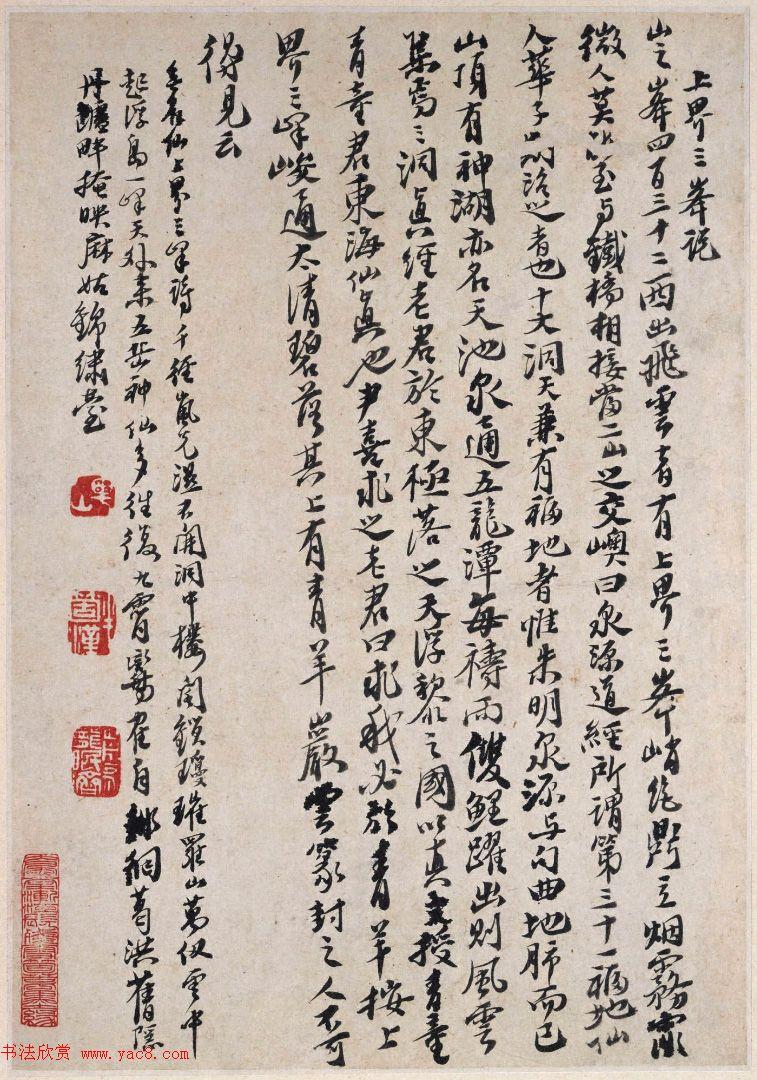 上界三峯说
山之峯四百三十二西出飛雲者有上界三峯峭絶鼎立烟霧霏
微人莫以至与鐵橋相接當二山之交嶼曰泉源道經所謂第三十一福地仙
人華子所治之者也十大洞天兼有福地者惟朱明泉源与句曲地肺而已
山頂有神湖亦名天池泉通五龍潭每禱雨雙鯉躍出則風雲
集焉三洞真經老君於東極落之天浮黎之國以真文授青童
青童君東海仙真也尹喜求之老君曰求我必於青羊按上
界三峰峻通太清碧落其上有青羊巖雲篆封之人不可
得見云
仙上界三峰詩千径嵐光濕不開洞中樓閣鎖瓊瑰羅山萬仭雲中
起浮島一峰天外來五嶽神仙多往復九霄鸞鶴自徊葛洪舊隱
丹罏畔掩映麻姑錦繡臺
书法欣赏 www.yac8.com